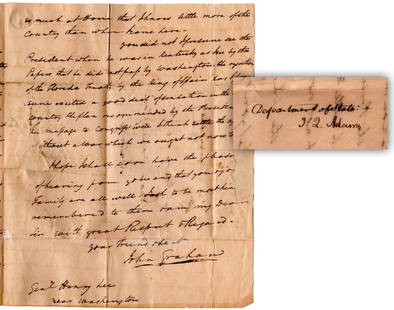 so much at Home that I know little more of the
Country than when I came here.—
you did not I presume see the
President when he was in Kentucky as I see by the
Papers that he did not pass by Washington. the rejection
of the Florida Treaty by the King of Spain has I
sume excited a good deal of sensation in the
Country. the plan recommended by the Preside
his message to Congress will I think settle the
without a war which we ought not now to
I hope I shall soon have the pleas
of hearing from you and that you & your
Family are all well I wish to be most kin
remembered to them I am my Dear
Sir with great Respect & Regard—
your Friend &c &c
John Graham
Genl Henry Lee
near Washington
Department of State:
J. Q. Adams